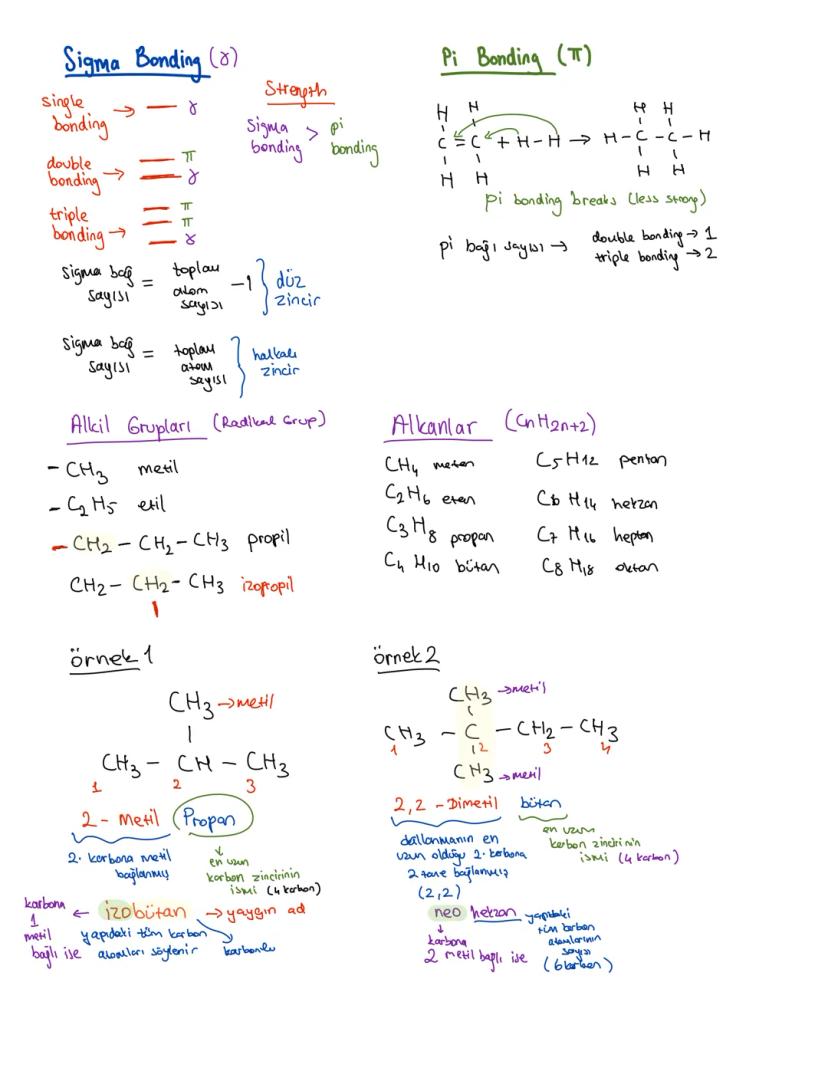 Sigma Bonding (γ)
Strength
single bonding → — γ
double bonding → — π
— γ
triple bonding → — π
— π
— γ
Sigma bonding > pi bonding
Sigma bağ sayısı = toplam atom sayısı -1 } düz zincir
Sigma bağ sayısı = toplam atom sayısı } halkalı zincir
Pi Bonding (π)
H H
C = C + H-H → H-C-C-H
H H
H H
H H
pi bonding breaks (less strong)
pi bağı sayısı → double bonding → 1
triple bonding → 2
Alkil Grupları (Radikal Grup)
- CH3 metil
- C2H5 etil
- CH2 - CH2 - CH3 propil
CH2 - CH2 - CH3 izopropil
Alkanlar (CnH2n+2)
CH4 metan
C2H6 etan
C3H8 propan
C4H10 bütan
C5H12 pentan
C6H14 hekzan
C7H16 heptan
C8H18 oktan
örnek 1
CH3 → metil
CH3 - CH - CH3
1 2 3
2 - Metil Propan
2. karbona metil bağlanmış
en uzun
karbon zincirinin
ismi (4 karbon)
karbona
1
metil
bağlı ise
← izobütan → yaygın ad
yapıdaki tüm karbon
atomları söylenir
karbonlu
örnek 2
CH3 → metil
CH3 - C - CH2 - CH3
1 2 3 4
CH3 → metil
2,2 - Dimetil bütan
dallanmanın en
uzun olduğu 2. karbona
2 tane bağlanmış
(2,2)
en uzun
karbon zincirinin
ismi (4 karbon)
neo hekzan
↓
karbona
2 metil bağlı ise
yapıdaki
tüm karbon
atomlarının
sayısı
(6 karbon)